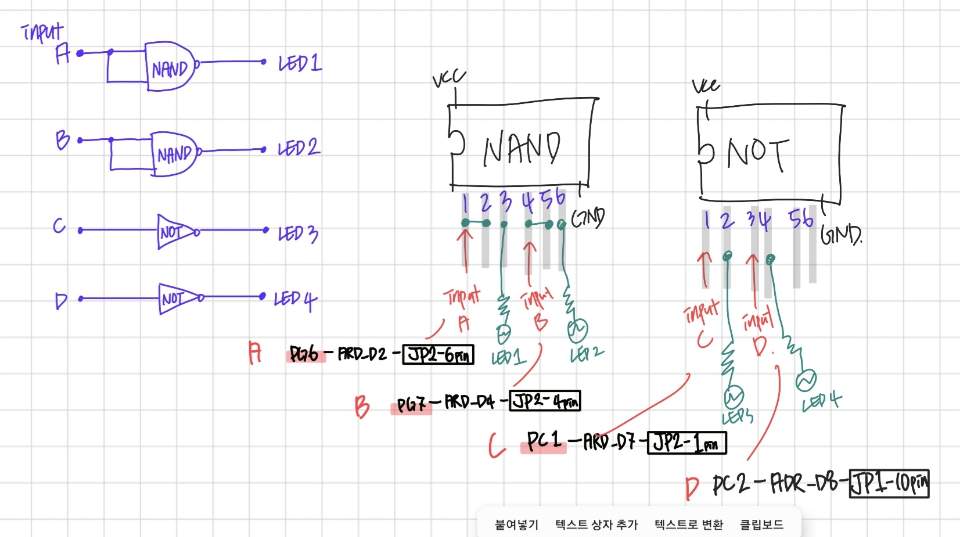 input
A NAND LED1
B NAND LED2
C NOT LED3
D NOT LED4
VCC
NAND
1 2 3 4 5 6
GND
input A
input B
LED1
LED2
VCC
NOT
1 2 3 4 5 6
GND.
input C
input D.
LED3
LED4
A PG6 - ARD_D2 - JP2-6pin
B PG7 - ARD_D4 - JP2-4pin
C PC1 - ARD_D7 - JP2-1pin
D PC2 - ADR_D8 - JP1-10pin
붙여넣기 텍스트 상자 추가 텍스트로 변환 클립보드